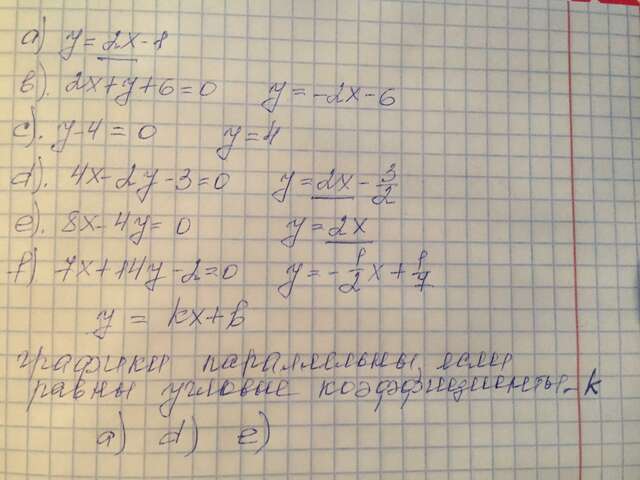 a) y = 2x - 1
b). 2x + y + 6 = 0 y = -2x - 6
c). y - 4 = 0 y = 4
d). 4x - 2y - 3 = 0 y = 2x - 3/2
e). 8x - 4y = 0 y = 2x
f) 7x + 14y - 2 = 0 y = -1/2 x + 1/7
y = kx + b
графики параллельны, если
равны угловые коэффициенты - k
a) d) e)